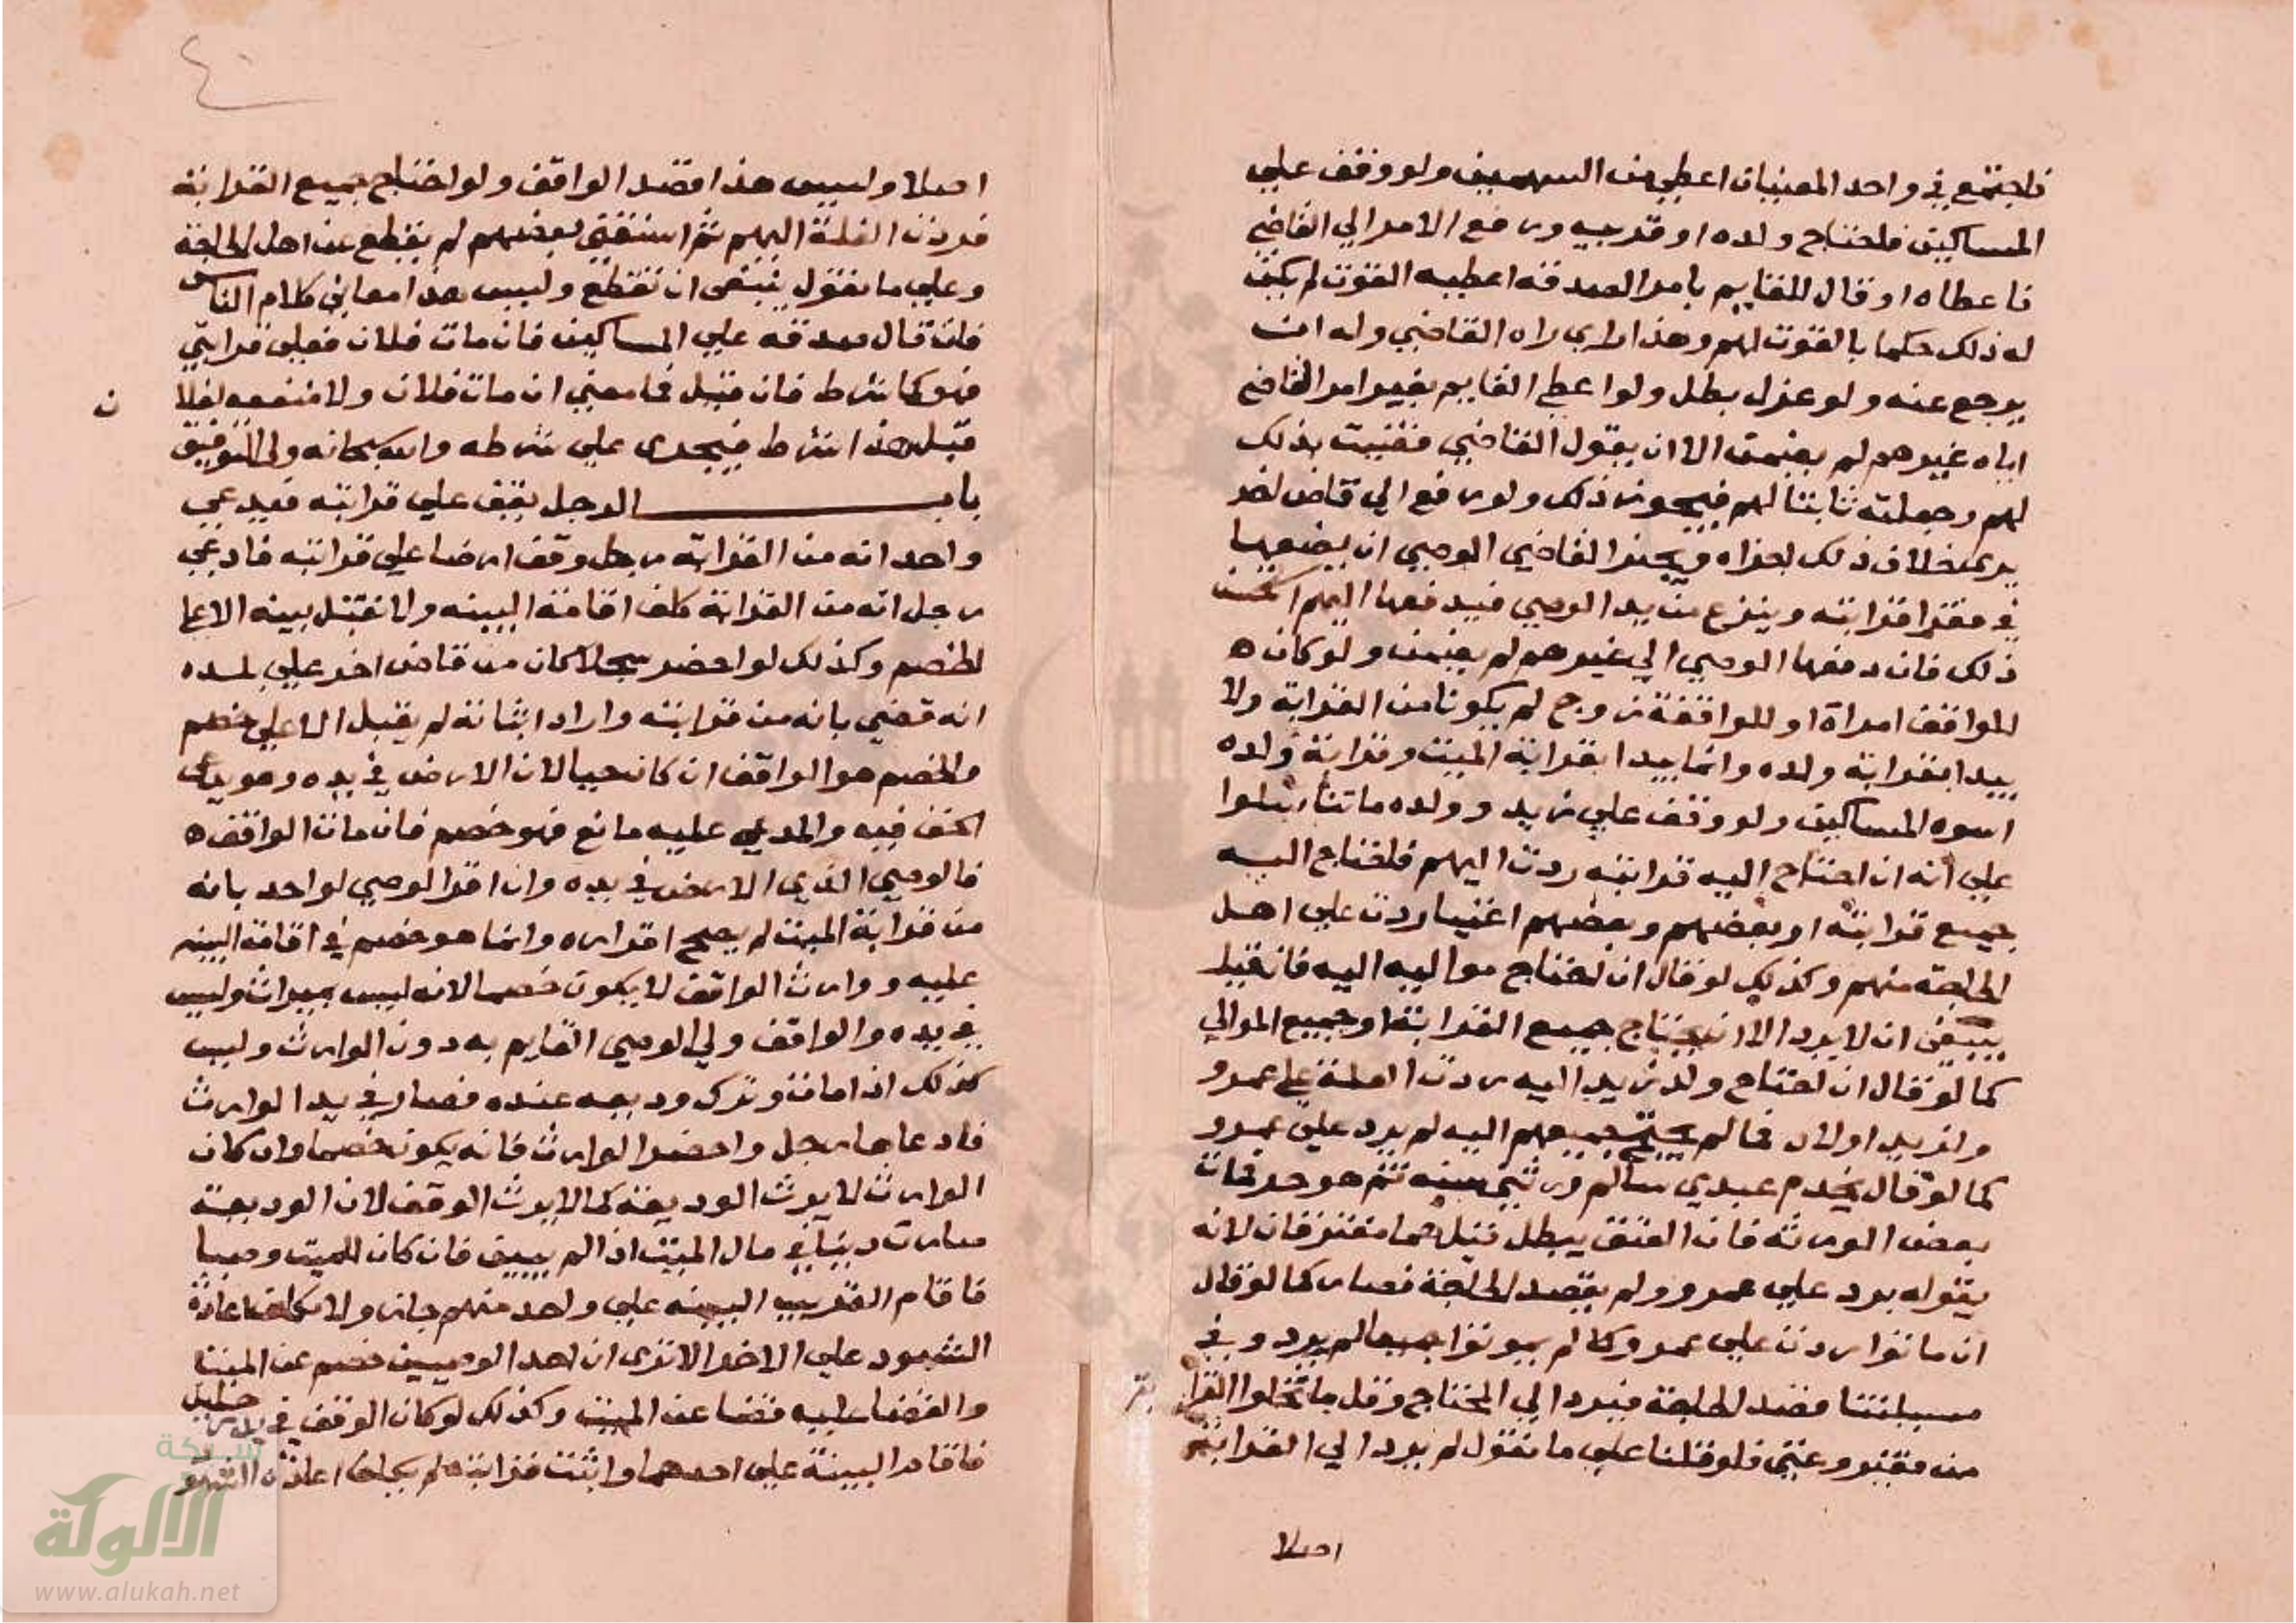 فاجتمع في واحد المعنيان اعطي من السهمين ولو وقف علي
المساكين فاحتاج ولده او قريبه ورفع الامر الي القاضي
فاعطاه او قال للقايم بامر الصدقه اعطيه القوت لم يكن
له ذلك حكما بالقوت لهم وهذا راي راه القاضي وله ان
يرجع عنه ولو عزل بطل ولو اعطي القايم بغير امر القاضي
اياه غيرهم لم يضمن الا ان يقول القاضي قضيت بذلك
لهم وجعلته ثابتا لهم فيجوز ذلك ولو رفع الي قاض اخر
يري خلاف ذلك اجزاه ويجبر القاضي الوصي ان يضعها
في فقرا قرابته وينزع من يد الوصي فيدفعها اليهم
ذلك فان دفعها الوصي الي غيرهم لم يضمن ولو كان ه
للواقف امراة او للواقفة زوج لم يكونا من القرابة ولا
يبدا بقرابة ولده وانما يبدا بقرابة الميت وقرابة ولده
اسوه المساكين ولو وقف علي زيد وولده ما تناسلوا
علي انه ان احتاج اليه قرابته ردت اليهم فاحتاج اليه
جميع قرابته او بعضهم وبعضهم اغنيا ردت علي اهل
الحاجة منهم وكذلك لو قال ان احتاج مواليه اليه فان قيل
ينبغي ان لا يرد الا ان يحتاج جميع القرابة او جميع الموالي
كما لو قال ان احتاج ولد زيد اليه ردت الغلة علي عمرو
ولزيد اولاد فما لم يحتج جميعهم اليه لم يرد علي عمرو
كما لو قال يخدم عبدي سالم ورثتي سنه ثم هو حر فمات
بعض الورثه فان العتق يبطل قيل هما مفترقان لانه
بقوله يرد علي عمرو ولم يقصد الحاجة فصار كما لو قال
ان ماتوا ردت علي عمرو وكما لم يموتوا جميعا لم يرد وفي
مسيلتنا قصد الحاجة فيرد الي المحتاج وقل ما تخلوا القرا بة
من فقير وغني فلو قلنا علي ما نقول لم يرد الي القرابة
اصلا
٤٠
اصلا وليس هذا قصد الواقف ولو احتاج جميع القرابة
فردت الغلة اليهم ثم استغني بعضهم لم يقطع عن اهل الحاجة
وعلي ما نقول ينبغي ان تقطع وليس هذا معاني كلام الناس
فان قال صدقه علي المساكين فان مات فلان فعلي قرابتي
فهو كما شرط فان قيل فما معني ان مات فلان ولا منفعه لفلا ن
قيل هذا شرط فيجري علي شرطه والله سبحانه ولي التوفيق
باب الرجل يقف علي قرابته فيدعي
واحد انه من القرابة رجل وقف ارضا علي قرابته فادعي
رجل انه من القرابة كلف اقامة البينه ولا تقبل بينه الا علي
خصم وكذلك لو احضر سجلا كان من قاض اخر علي بلده
انه قضي بانه من قرابته واراد اثباته لم يقبل الا علي خصم
والخصم هو الواقف ان كان حيا لان الارض في يده وهو يدعي
الحق فيه والمدعي عليه مانع فهو خصم فان مات الواقف ه
فالوصي الذي الارض في يده وان اقر الوصي لواحد بانه
من قرابة الميت لم يصح اقراره وانما هو خصم في اقامة البينه
عليه ووارث الواقف لا يكون خصما لانه ليس بميراث وليس
في يده والواقف ولي الوصي القايم به دون الوارث وليس
كذلك اذا مات وترك وديعه عنده فصار في يد الوارث
فادعاها رجل واحضر الوارث فانه يكون خصما وان كان
الوارث لا يرث الوديعة كما لا يرث الوقف لان الوديعة
صارت دينا في مال الميت اذا لم يبين فان كان للميت وصيا
فاقام القريب البينه علي واحد منهم جاز ولا يكلف اعادة
الشهود علي الاخر الا تري ان احد الوصيين خصم عن الميت
والقضا عليه قضا عن الميت وكذلك لو كان الوقف في يد رجلين
فاقام البينة علي احدهما واثبت قرابته لم يكلف اعادة الشهو
شبكة
الألوكة
www.alukah.net